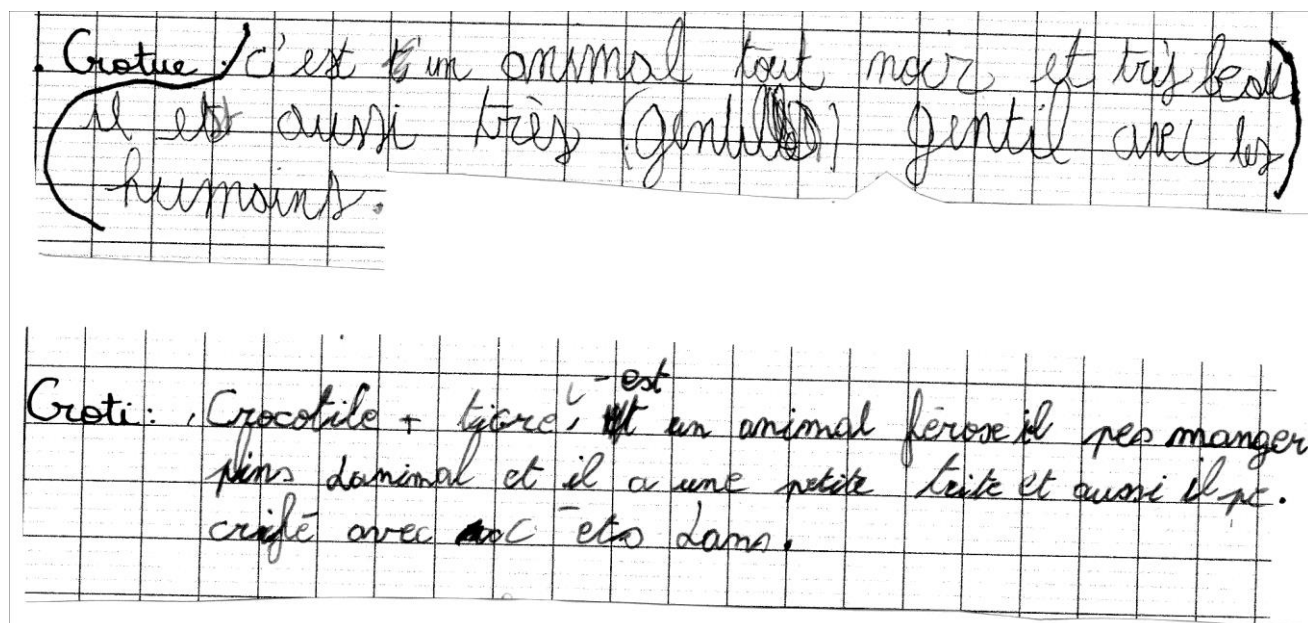 . Crotue . c'est t'un animal tout noir et très beau
il est aussi très (gentill) gentil avec les
humains.
Croti : Crocotile + tigre, c-est un animal férose il peo manger
plins d'animal et il a une petite trite et aussi il pe.
crifé avec c ets dans.